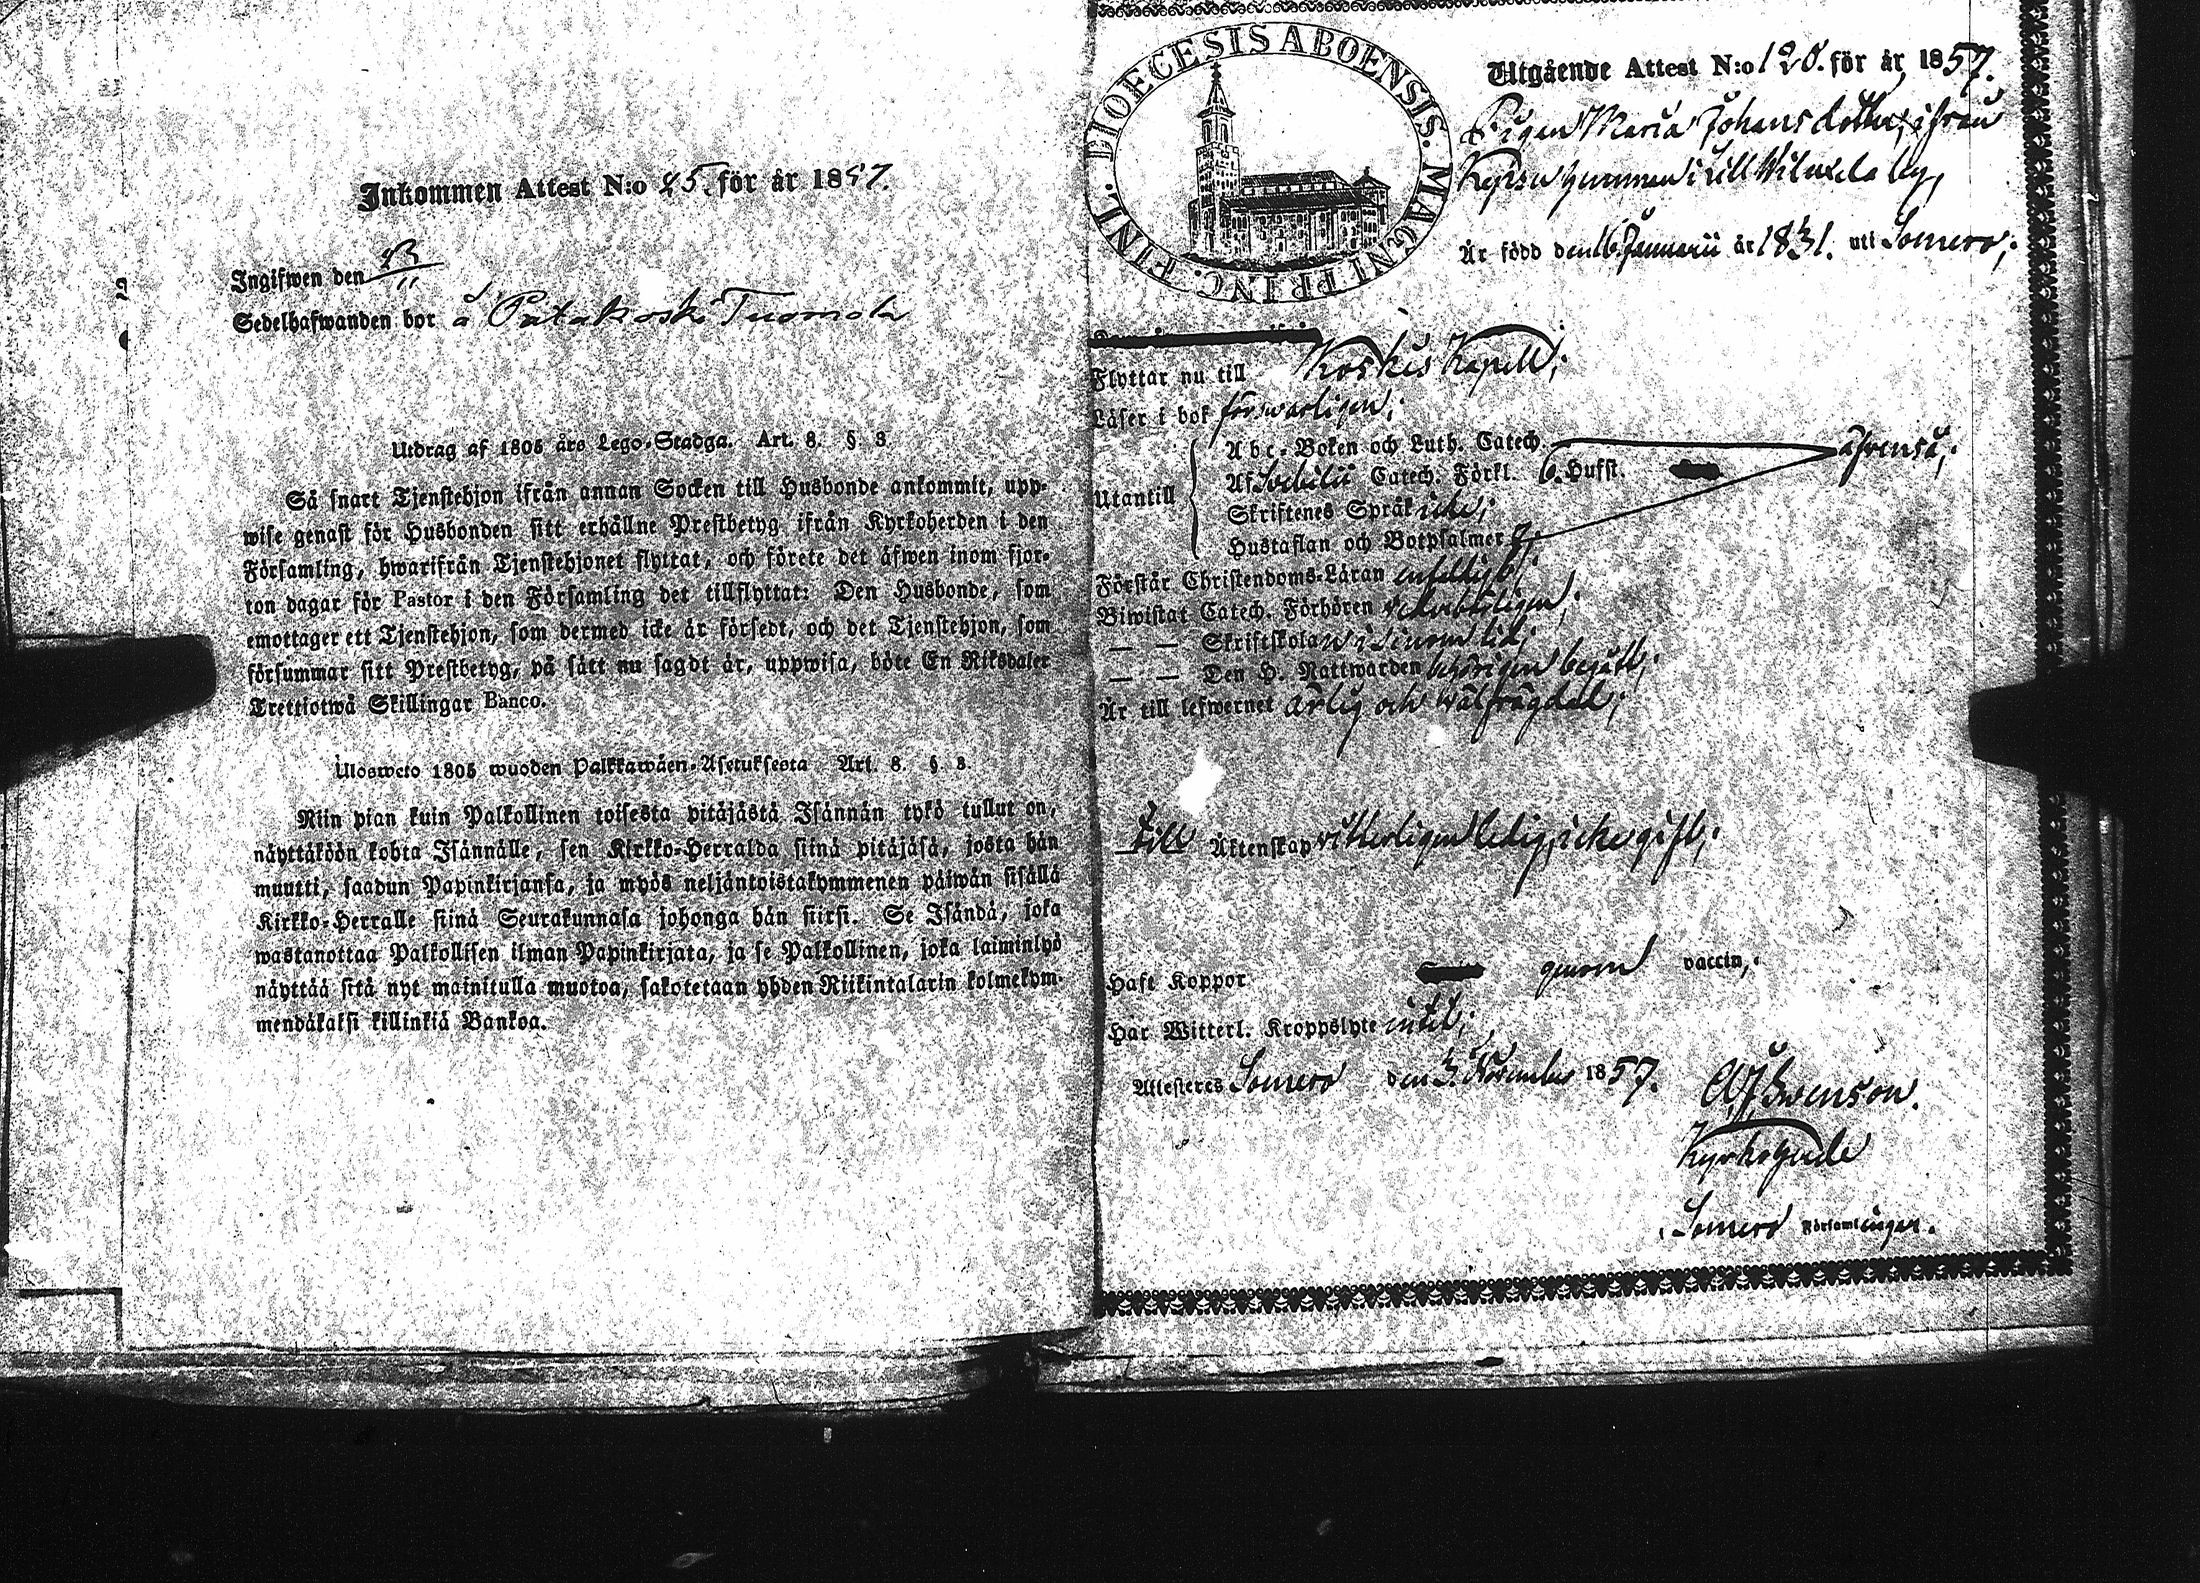 Inkommen Attest N:o 45. för år 1857.
Ingifwen den 23/11
Sedelhafwanden bor å Patakoski Tuomola
Utdrag af 1805 års Lego-Stadga. Art. 8. § 3
Så snart Tjenstehjon ifrån annan Socken till Husbonde ankommit, upp-
wise genast för Husbonden sitt erhållne Prestbetyg ifrån Kyrkoherden i den
Församling, hwarifrån Tjenstehjonet flyttat, och förete det äfwen inom fjor-
ton dagar för Pastor i den Församling det tillflyttat: Den Husbonde, som
emottager ett Tjenstehjon, som dermed icke är försedt, och det Tjenstehjon, som
försummar sitt Prestbetyg, på sätt nu sagdt är, uppwisa, böte En Riksdaler
Trettiotwå Skillingar Banco.
Ulosweto 1805 wuoden Palkkawäen-Asetuksesta Art. 8. §. 3.
Niin pian kuin Palkollinen toisesta pitäjästä Isännän tykö tullut on,
näyttäköön kohta Isännälle, sen Kirkko-Herralda siinä pitäjäsä, josta hän
muutti, saadun Papinkirjansa, ja myös neljäntoistakymmenen päiwän sisällä
Kirkko-Herralle siinä Seurakunnasa johonga hän siirsi. Se Isändä, joka
wastanottaa Palkollisen ilman Papinkirjata, ja se Palkollinen, joka laiminlyö
näyttää sitä nyt mainitulla muotoa, sakotetaan yhden Riikintalarin kolmekym-
mendäkaksi killinkiä Bankoa.
DIOECESIS ABOENSIS. MAGNI PRINC. FINL.
Utgående Attest N:o 120. för år 1857.
Pigan Maria Johansdotter, ifrån
i till by,
Är född den 16. Januarii år 1831. uti Somero;
Flyttar nu till Koskis Kapell;
Läser i bok förswarligen;
Utantill
Abc-Boken och Luth. Catech.
Af Svebilii Catech. Förkl. 6. Hufst.
Skriftenes Språk icke;
Hustaflan och Botpsalmer 7.
äfwenså;
Förstår Christendoms-Läran enfaldigt;
Biwistat Catech. Förhören
— — Skriftskolan
— — Den H. Nattwarden behörigen begått;
Är till lefwernet ärlig och wälfrägdad;
Till Äktenskap witterligen ledig, icke gift;
Haft Koppor genom vaccin,
Har Witterl. Kroppslyte intet;
Attesteres Somero den 3. November 1857.
Swenson.
Kyrkoherde
i Somero Församlingar.